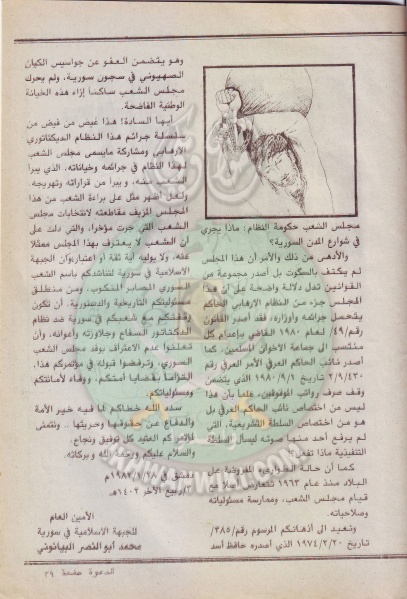 مجلس الشعب حكومة النظام: ماذا يجري
في شوارع المدن السورية؟
والأدهى من ذلك والأمر أن هذا المجلس
لم يكتف بالسكوت بل أصدر مجموعة من
القوانين تدل دلالة واضحة على أن هذا
المجلس جزء من النظام الارهابي الحاكم
يتحمل جرائمه وأوزاره، فقد أصدر القانون
رقم /٤٩/ لعام ١٩٨٠ القاضي بإعدام كل
منتسب الى جماعة الاخوان المسلمين، كما
أصدر نائب الحاكم العرفي الأمر العرفي رقم
٢/٩٤٣٠ تاريخ ١٩٨٠/٩/٢ الذي يتضمن
وقف صرف رواتب الموقوفين، علما بأن هذا
ليس من اختصاص نائب الحاكم العرفي بل
هو من اختصاص السلطة التشريعية، التي
لم يرفع أحد منها صوته ليسأل السلطة
التنفيذية ماذا تفعل؟
كما أن حالة الطوارىء المفروضة على
البلاد منذ عام ١٩٦٣ تتعارض أصلا مع
قيام مجلس الشعب، وممارسة مسئولياته
وصلاحياته.
ونعيد الى أذهانكم المرسوم رقم /٣٨٥/
تاريخ ١٩٧٤/٢/٢٠ الذي أصدره حافظ أسد
وهو يتضمن العفو عن جواسيس الكيان
الصهيوني في سجون سورية، ولم يحرك
مجلس الشعب ساكنا إزاء هذه الخيانة
الوطنية الفاضحة.
أيها السادة! هذا غيض من فيض من
سلسلة جرائم هذا النظام الديكتاتوري
الارهابي ومشاركة مايسمى مجلس الشعب
لهذا النظام في جرائمه وخياناته، الذي يبرأ
الشعب منه، ويبرأ من قراراته وتهريجه
ولعل أظهر مثل على براءة الشعب من هذا
المجلس المزيف مقاطعته لانتخابات مجلس
الشعب التي جرت مؤخرا، والتي دلت على
أن الشعب لا يعترف بهذا المجلس ممثلا
عنه، ولا يوليه أية ثقة أو اعتبار، وإن الجبهة
الاسلامية في سورية لتناشدكم باسم الشعب
السوري الصابر المنكوب، ومن منطلق
مسئوليتكم التاريخية والدستورية، أن تكون
وقفتكم مع شعبكم في سورية ضد نظام
الدكتاتور السفاح وجلاوزته وأعوانه، وأن
تعلنوا عدم الاعتراف بوفد مجلس الشعب
السوري، وترفضوا قبوله في مؤتمركم هذا،
التزاما بقضايا أمتكم، ووفاء لأمانتكم
ومسئولياتكم.
سدد الله خطاكم لما فيه خير الأمة
والدفاع عن حقوقها وحريتها.. ونتمنى
لمؤتمركم العتيد كل توفيق ونجاح.
والسلام عليكم ورحمة الله وبركاته.
دمشق في
ربيع الآخر ١٤٠٢هـ
الأمين العام
للجبهة الاسلامية في سورية
محمد أبو النصر البيانوني
الدعوة صفحة ٣٩